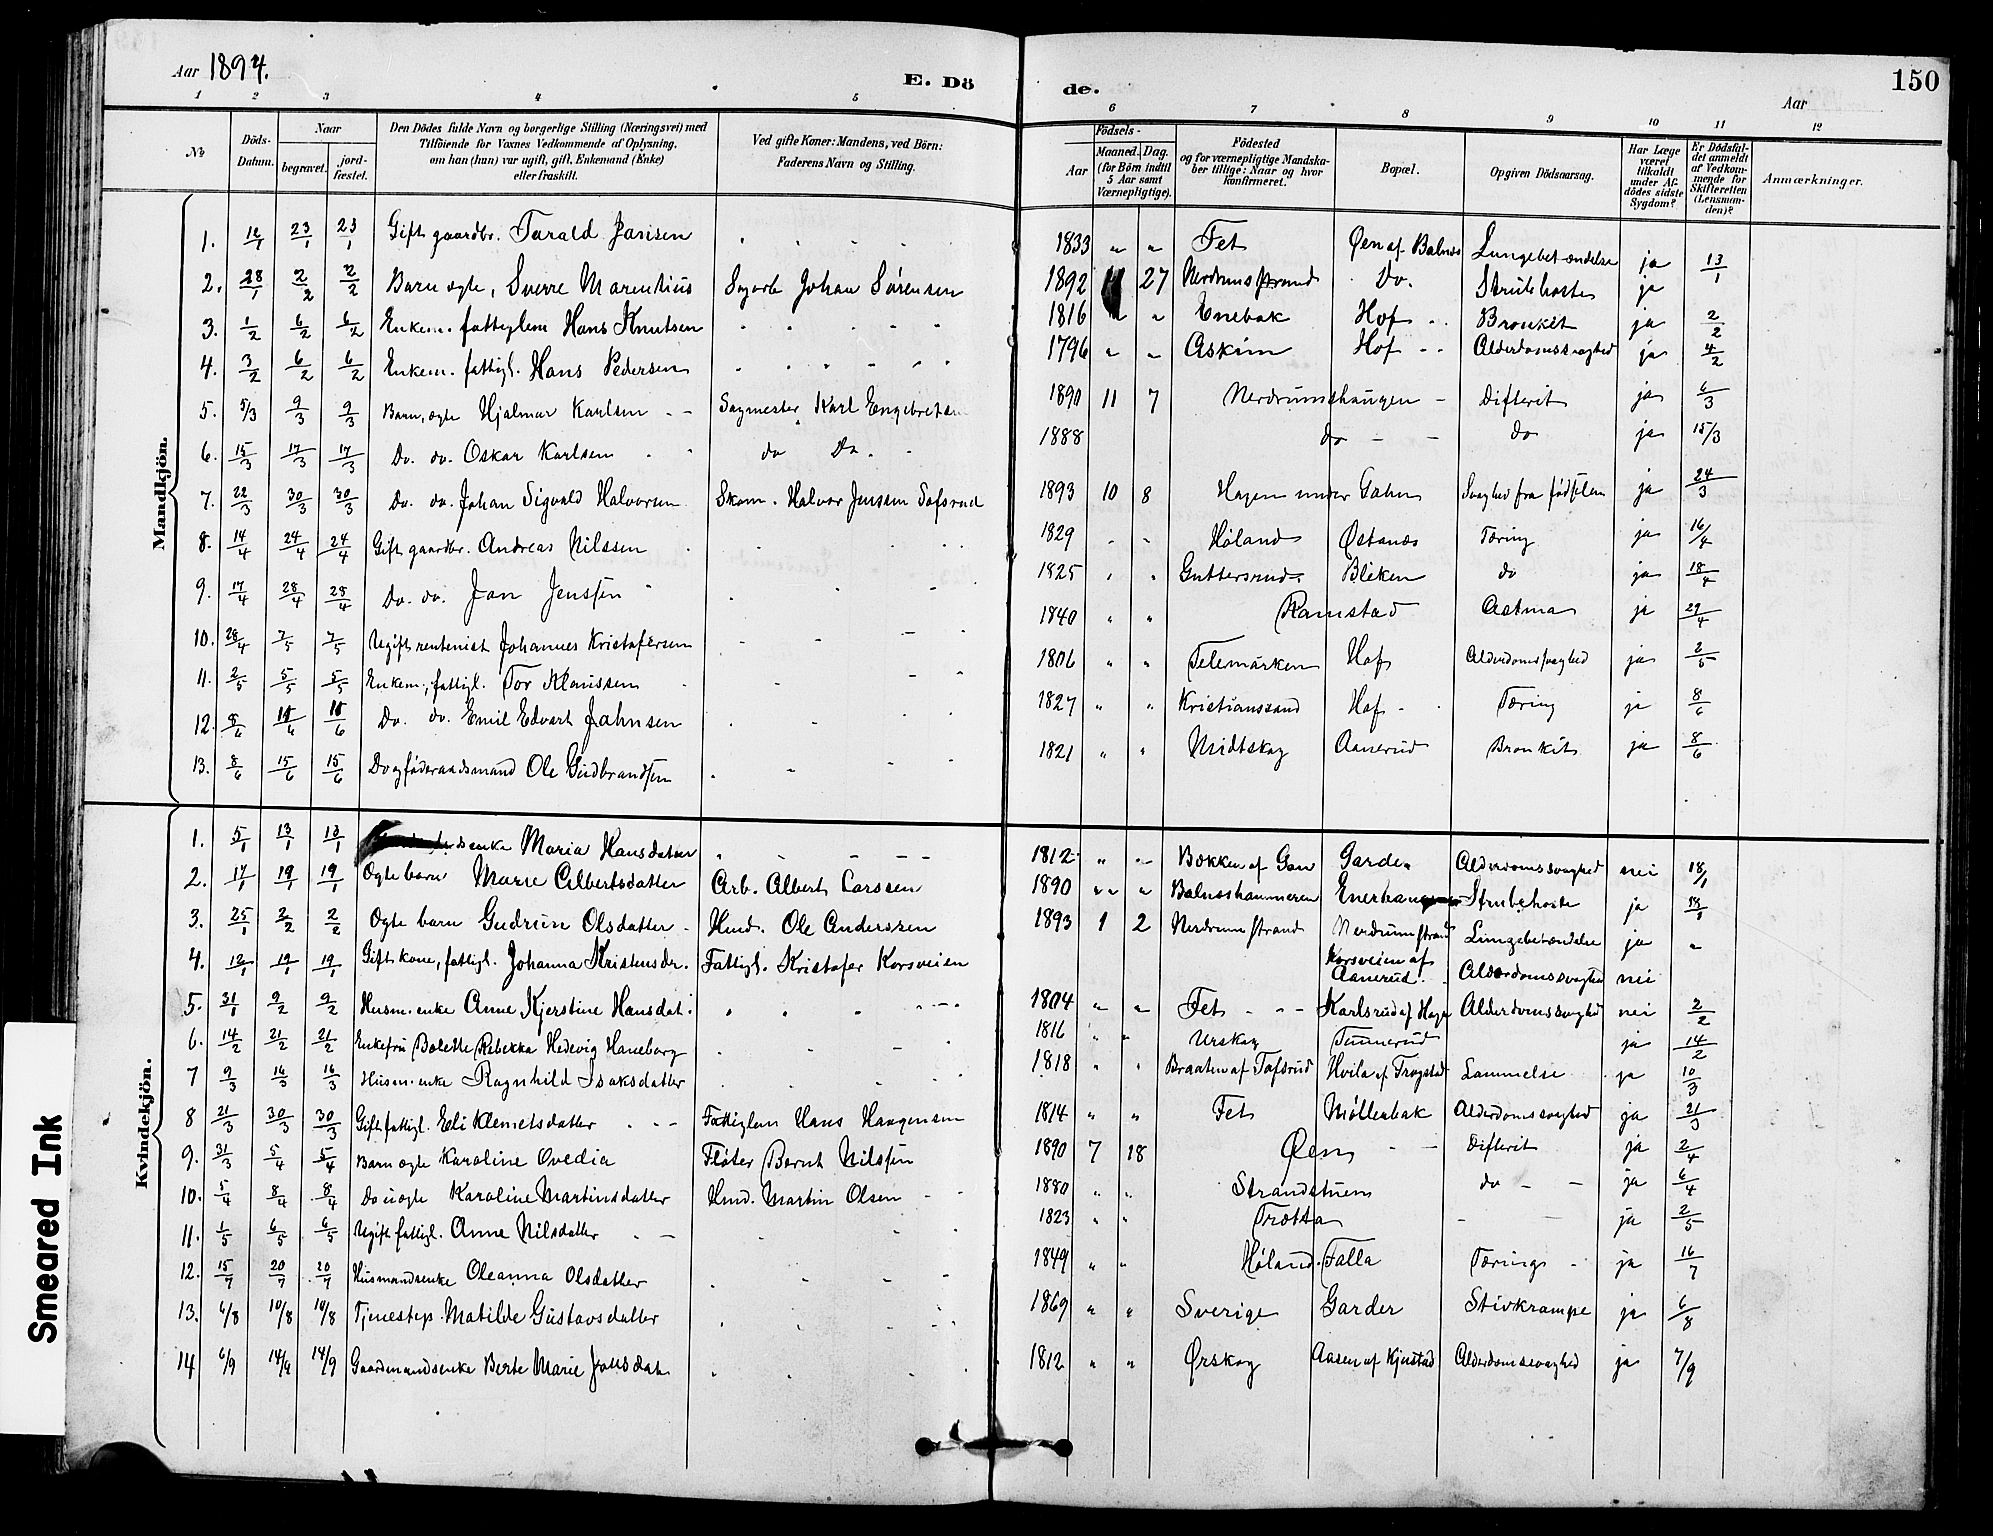 Aar 1894.
E. Dö de.
150
Aar
1 2 3 4 5 6 7 8 9 10 11 12
No
Döds-Datum.
Naar
begravet.
jord-fæstet.
Den Dödes fulde Navn og borgerlige Stilling (Næringsvei) med
Tilföiende for Voxnes Vedkommende af Oplysning,
om han (hun) var ugift, gift, Enkemand (Enke)
eller fraskilt.
Ved gifte Koner: Mandens, ved Börn:
Faderens Navn og Stilling.
Födsels-
Aar
Maaned. Dag.
(for Börn indtil
5 Aar samt
Værnepligtige).
Födested
og for værnepligtige Mandska-
ber tillige: Naar og hvor
konfirmeret.
Bopæl.
Opgiven Dödsaarsag.
Har Læge
været
tilkaldt
under Af-
dödes sidste
Sygdom?
Er Dödsfal-
det anmeldt
af Vedkom-
mende for
Skifteretten
(Lensman-
den)?
Anmærkninger.
Mandkjön.
1. 23/1 23/1 Gift gaardbr. Tarald 1833 " " Fet Øen af Balnes Lungebetændelse ja 13/1
2. 28/1 2/2 2/2 Barn ægte, Sverre Marentius Sagarb Johan Sørensen 1892 27 Nerdrumstrand Do. Strubehoste ja
3. 1/2 6/2 6/2 Enkem. fattiglem Hans Knutsen 1816 " " Enebak Hof Bronkit ja 2/2
4. 3/2 6/2 6/2 Enkem. fattigl. Hans Pedersen 1796 " " Askim Hof Alderdomssvaghed ja 4/2
5. 5/3 9/3 9/3 Barn, ægte Hjalmar Karlsen Sagmester Karl Engebretsen 1890 11 7 Nerdrumshaugen Difterit ja 6/3
6. 15/3 17/3 17/3 Do. do. Oskar Karlsen do Do. 1888 do do ja 15/3
7. 22/3 30/3 30/3 Do. do. Johan Sigvald Halvorsen Skom. Halvor Jenssen 1893 10 8 Hagen under Svaghed fra fødselen ja 24/3
8. 14/4 24/4 24/4 Gift gaardbr. Andreas Nilssen 1829 Høland Østanes Tæring ja 16/4
9. 17/4 28/4 28/4 Do. do. Jan Jenssen 1825 Guttersrud Bleken do ja 18/4
10. 28/4 7/5 7/5 Ugift rentenist Johannes Kristofersen 1840 " " Ramstad Astma ja 29/4
11. 2/5 5/5 5/5 Enkem., fattigl. Tor Klaussen 1806 " " Telemarken Hof Alderdomssvaghed ja 2/5
12. 8/6 Do. do. Emil Edvart Jahnsen 1827 " " Kristianssand Hof Tæring ja 8/6
13. 8/6 15/6 15/6 Do og føderaadsmand Ole Gudbrandsen 1821 " " Midtskog Aanerud Bronkit ja 8/6
Kvindekjön.
1. 5/1 13/1 13/1 enke Maria Hansdatter 1812 " Bækken af Gan Garder Alderdomssvaghed nei 18/1
2. 17/1 19/1 19/1 Ægte barn Marie Albertsdatter Arb. Albert Larssen 1890 " " Balneshammeren Enerhaugen Strubehoste ja 18/1
3. 25/1 2/2 2/2 Ægte barn Gudrun Olsdatter Husd. Ole Anderssen 1893 1 2 Nerdrumstrand Nerdrumstrand Lungebetændelse ja "
4. 12/1 19/1 19/1 Gift kone, fattigl. Johanna Kristensdr. Fattigl. Kristofer Korsveien Korsveien af Aanerud. Alderdomssvaghed nei
5. 31/1 9/2 9/2 Husm. enke Anne Kjerstine Hansdat. 1804 " " Fet Karlsrud af Hage Alderdomssvaghed nei 2/2
6. 14/2 21/2 21/2 Enkefru Bolette Rebekka Hedevig Haneborg 1816 Urskog Tunnerud ja 14/2
7 9/3 16/3 16/3 Husm. enke Ragnhild Isaksdatter 1818 Braaten af Tofsrud Hvila af Trogstad Lammelse ja 10/3
8 21/3 30/3 30/3 Gift fattigl. Eli Klemetsdatter Fattiglem Hans Haagensen 1814 " " Fet Møllerbak Alderdomssvaghed ja 21/3
9. 31/3 5/4 5/4 Barn ægte Karoline Ovedia Fløter Bernt Nilssen 1890 7 18 Øen Difterit ja 2/4
10. 5/4 8/4 8/4 Do uægte Karoline Martinsdatter Husd. Martin Olsen 1880 " " Strandstuen do ja 6/4
11. 1/5 6/5 6/5 Ugift fattigl. Anne Nilsdatter 1823 " " Trøtta ja 2/5
12. 15/7 20/7 20/7 Husmandsenke Oleanna Olsdatter 1849 " " Høland Falla Tærings ja 16/7
13. 6/8 10/8 10/8 Tjenestep. Matilde Gustavsdatter 1869 " " Sverige Garder Stivkrampe ja 6/8
14 6/9 14/9 14/9 Gaardmandsenke Berte Marie Jonsdat. 1812 " " Ørskog Aasen af Kjustad Alderdomssvaghed ja 7/9
Smeared Ink